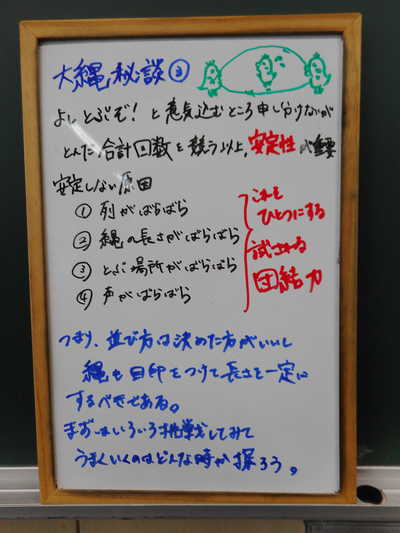 大縄秘談③
よしとぶぞ！と意気込むところ申し分けないが
とんだ合計回数を競う以上、安定性が重要
安定しない原因
① 列がばらばら
② 縄の長さがばらばら
③ とぶ場所がばらばら
④ 声がばらばら
これを
ひとつにする
試される
団結力
つまり、並び方は決めた方がいいし
縄も目印をつけて長さを一定に
するべきである。
まずはいろいろ挑戦してみて
うまくいくのはどんな時か探ろう。